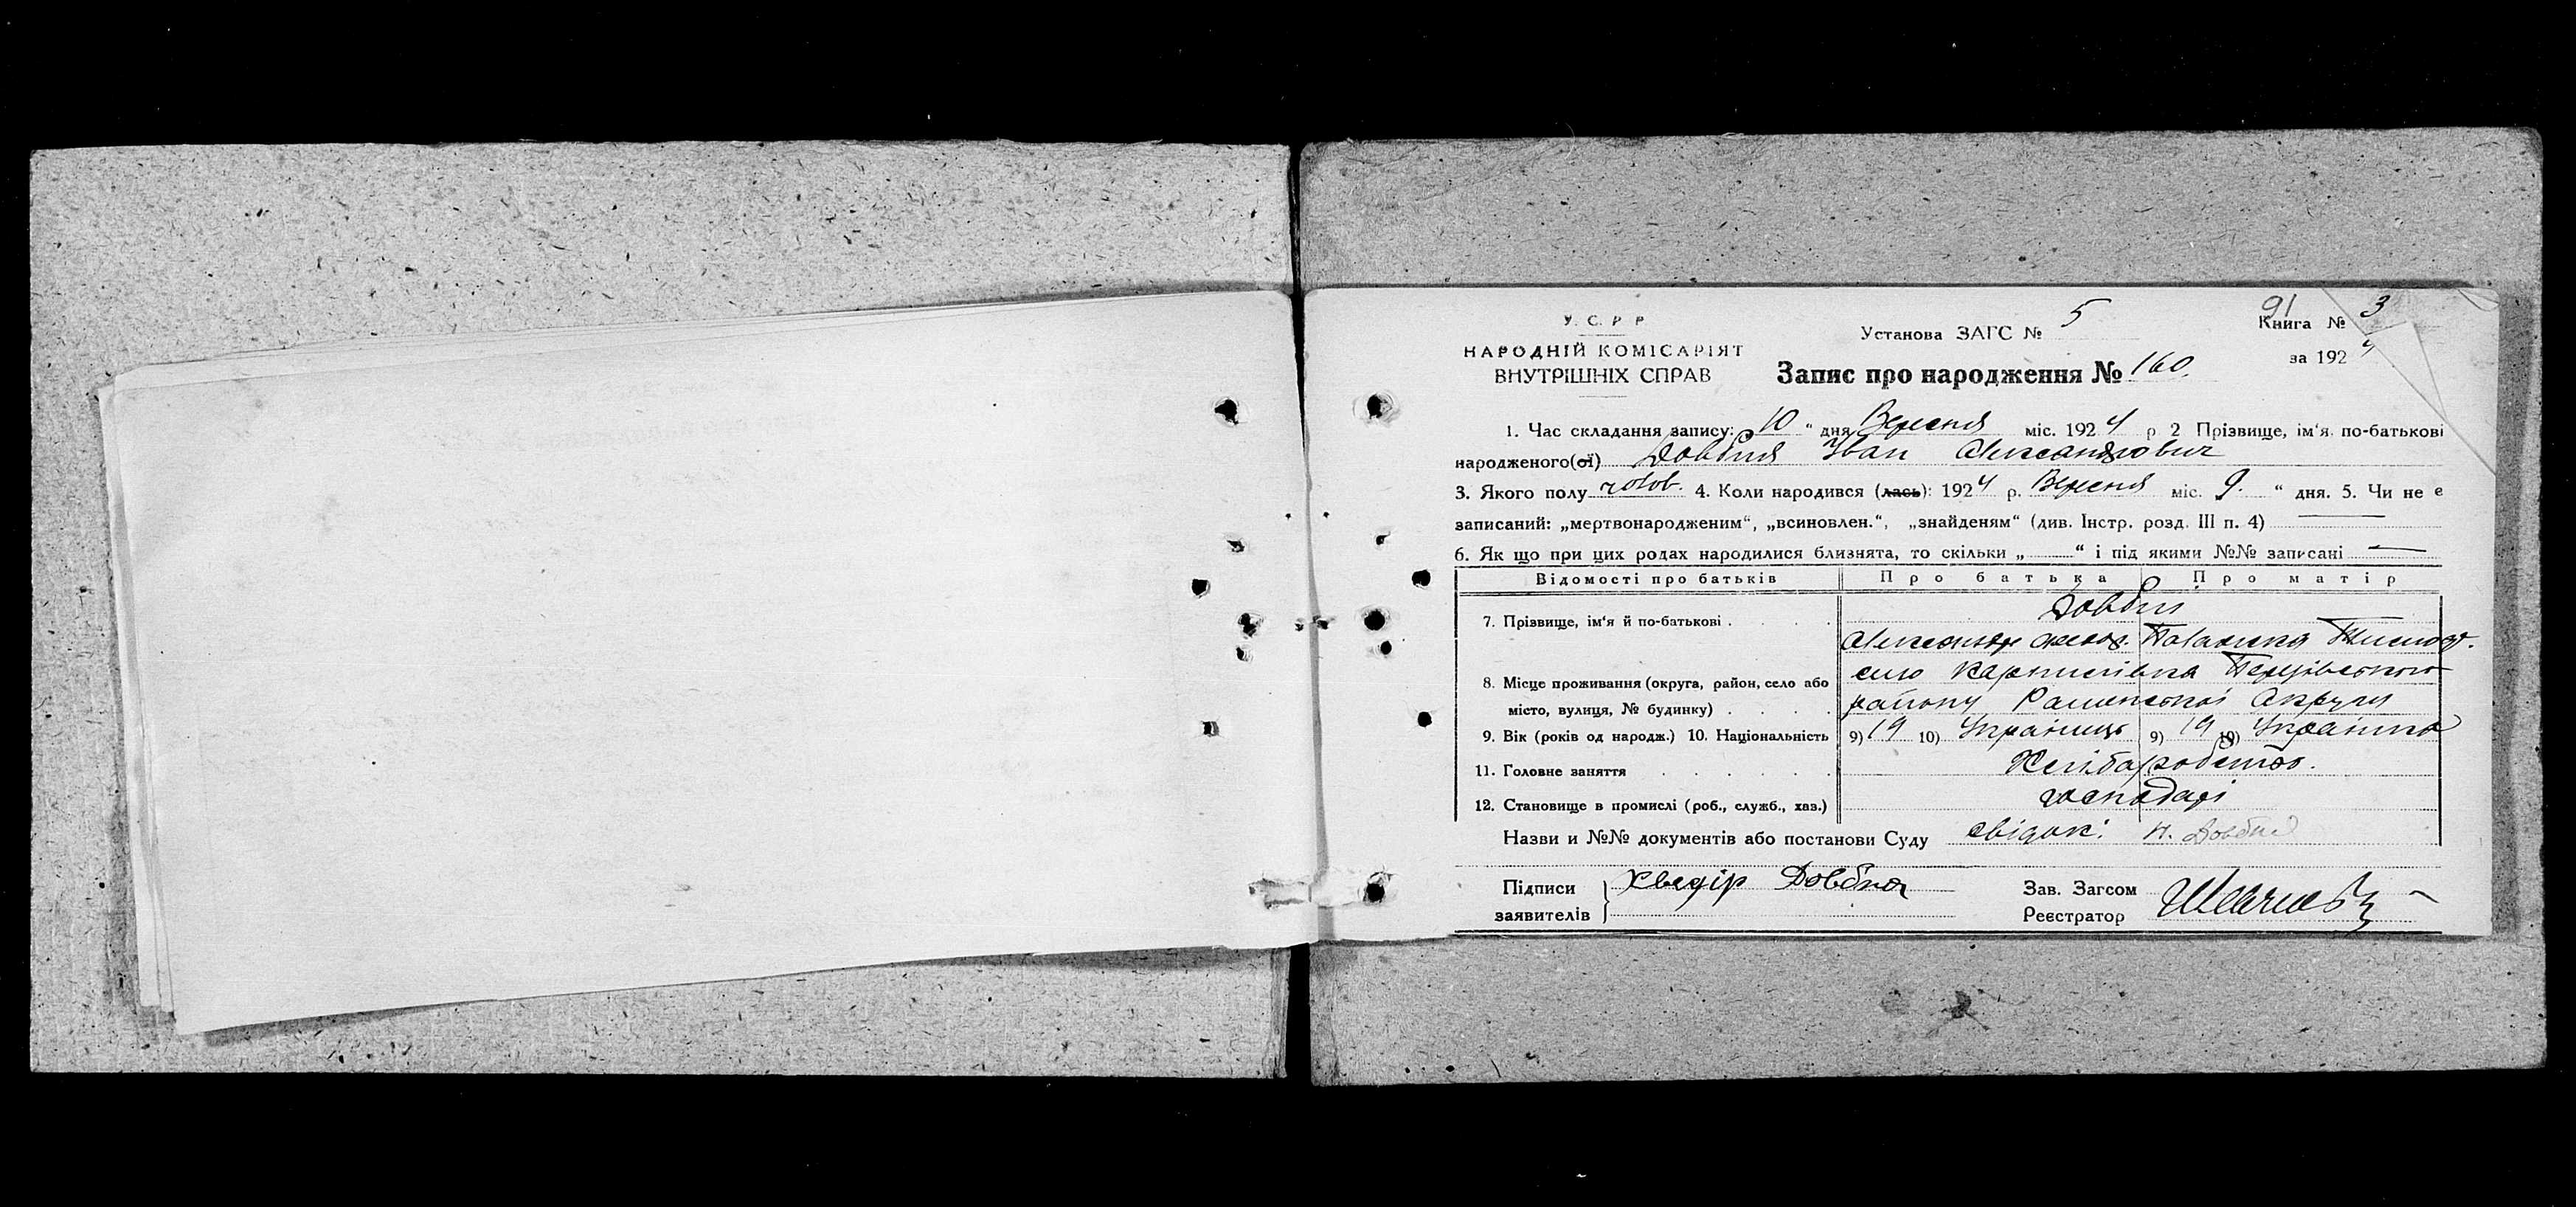 У. С. Р Р
НАРОДНІЙ КОМІСАРІЯТ
ВНУТРІШНІХ СПРАВ
Установа ЗАГС № 5
91
Книга № 3
за 1924
Запис про народження № 160.
1. Час складання запису: 10 " дня Вересня міс. 1924 р 2 Прізвище, ім'я, по-батькові
народженого(ої) Довбня Іван Александрович
3. Якого полу чолов. 4. Коли народився (лась): 1924 р. Вересня міс. 9. " дня. 5. Чи не є
записаний: „мертвонародженим", „всиновлен.", „знайденям" (див. Інстр. розд. III п. 4) ———
6. Як що при цих родах народилися близнята, то скільки „ — " і під якими №№ записані —
Відомості про батьків Про батька Про матір
7. Прізвище, ім'я й по-батькові . . . . Довбні
Александр Палажка Тимофт.
8. Місце проживання (округа, район, село або село Карпилівка
місто, вулиця, № будинку) . . . . району Роменської Округи
9. Вік (років од народж.) 10. Національність 9) 19 10) Українець 9) 19 10) Українка
11. Головне заняття . . . . . . Хліборобство.
12. Становище в промислі (роб., служб., хаз.) господарі
Назви и №№ документів або постанови Суду свідок: Довбня
Підписи Хведір Довбня
заявителів
Зав. Загсом
Реєстратор